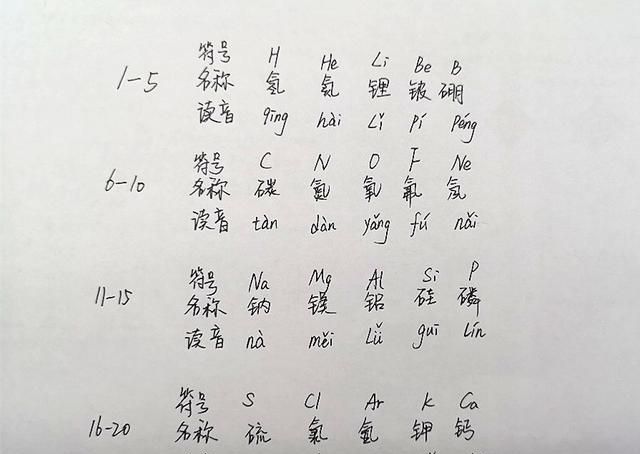 符号 H He Li Be B
1-5 名称 氢 氦 锂 铍 硼
读音 qīng hài Lǐ pí péng
符号 C N O F Ne
6-10 名称 碳 氮 氧 氟 氖
读音 tàn dàn yǎng fú nǎi
符号 Na Mg Al Si P
11-15 名称 钠 镁 铝 硅 磷
读音 nà měi Lǚ guī Lín
符号 S Cl Ar K Ca
16-20 名称 硫 氯 氩 钾 钙